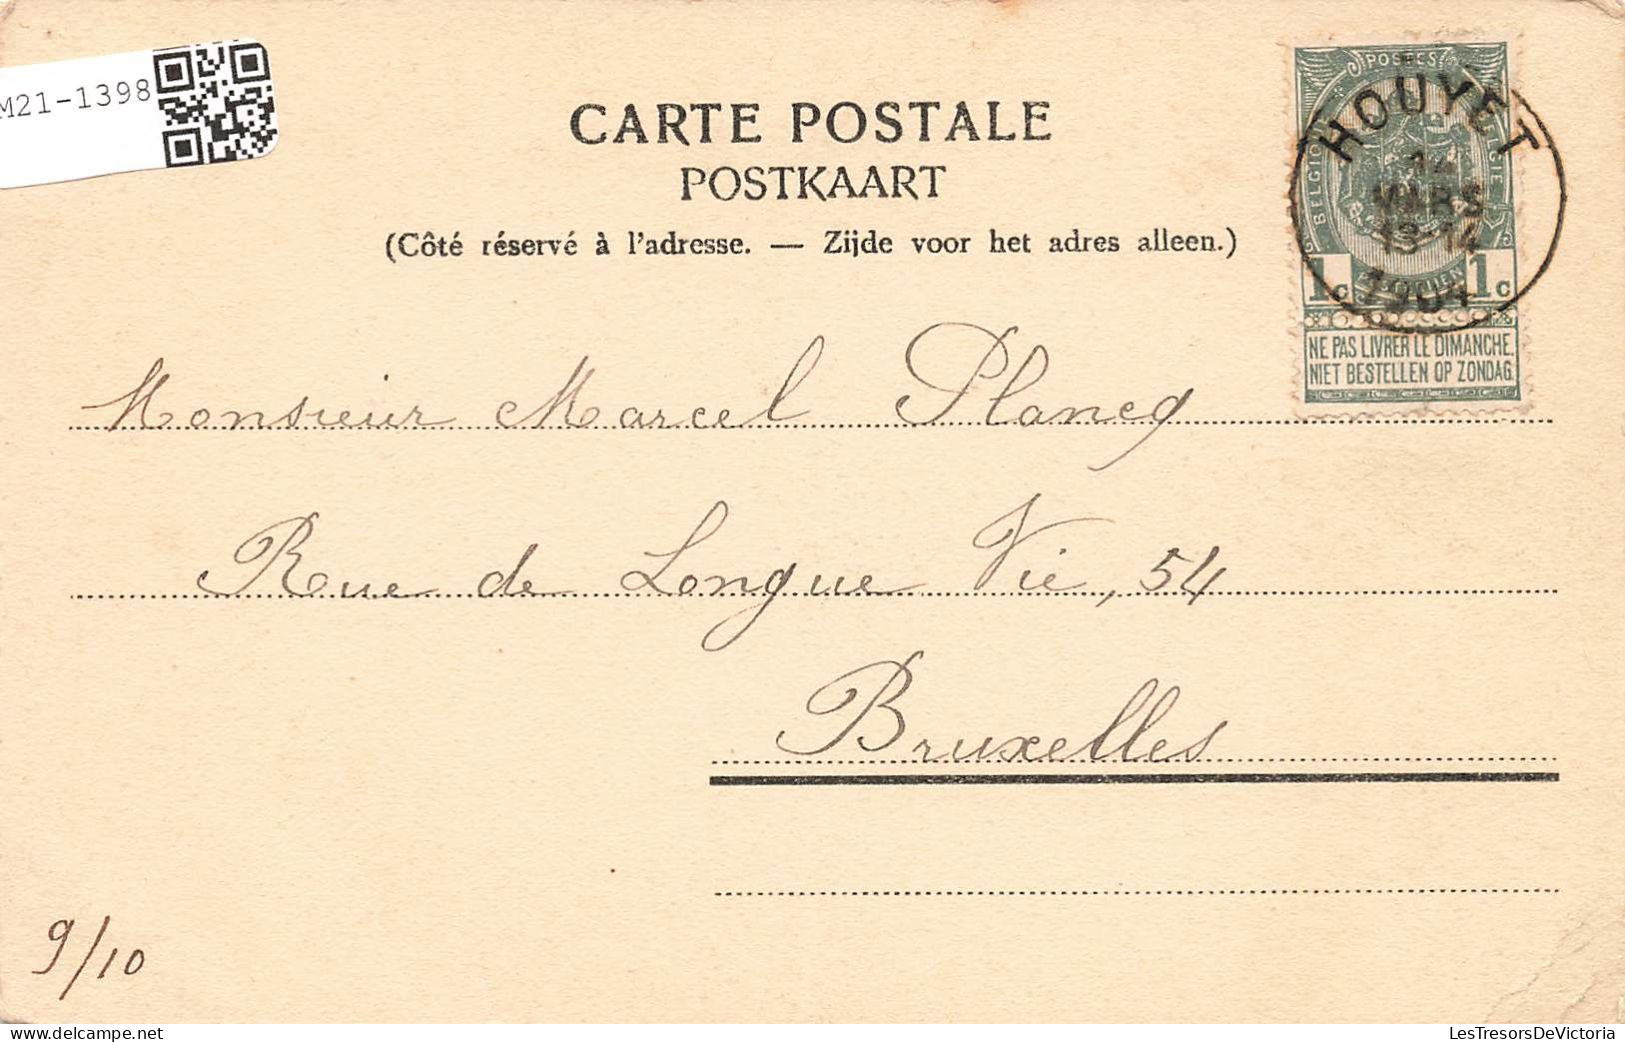 M21-1398
CARTE POSTALE
POSTKAART
(Côté réservé à l'adresse. — Zijde voor het adres alleen.)
POSTES
BELGIQUE
BELGIE
HOUYET
MARS
13-14
1904
1c 1c
NE PAS LIVRER LE DIMANCHE.
NIET BESTELLEN OP ZONDAG.
Monsieur Marcel Plancq
Rue de Longue Vie, 54
Bruxelles
9/10
LesTresorsDeVictoria